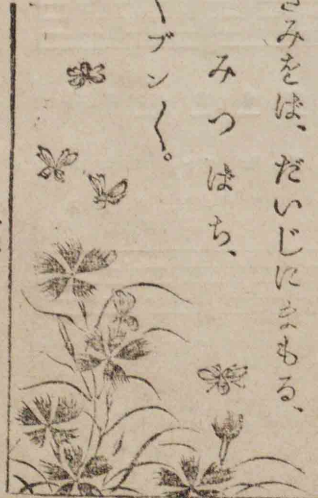 きみをば、だいじにまもる、
みつばち、
〱ブン〱。